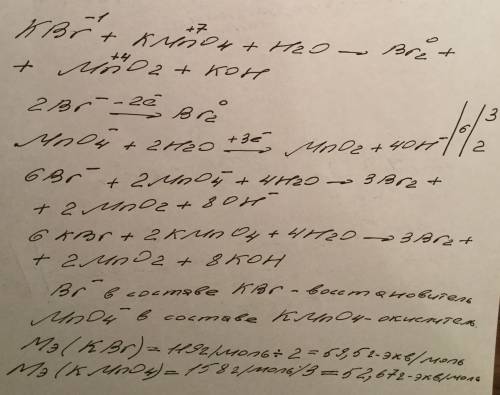 KBr⁻¹ + KMn⁺⁷O4 + H2O → Br2⁰ +
+ Mn⁺⁴O2 + KOH
2Br⁻ −2ē→ Br2⁰
MnO4⁻ + 2H2O +3ē→ MnO2 + 4OH⁻ / 6 / 3 2
6Br⁻ + 2MnO4⁻ + 4H2O → 3Br2 +
+ 2MnO2 + 8OH⁻
6KBr + 2KMnO4 + 4H2O → 3Br2 +
+ 2MnO2 + 8KOH
Br⁻ в составе KBr - восстановитель
MnO4⁻ в составе KMnO4 - окислител.
Mэ(KBr) = 119г/моль ÷ 2 = 59,5г-экв/моль
Mэ(KMnO4) = 158г/моль/3 = 52,67г-экв/моль